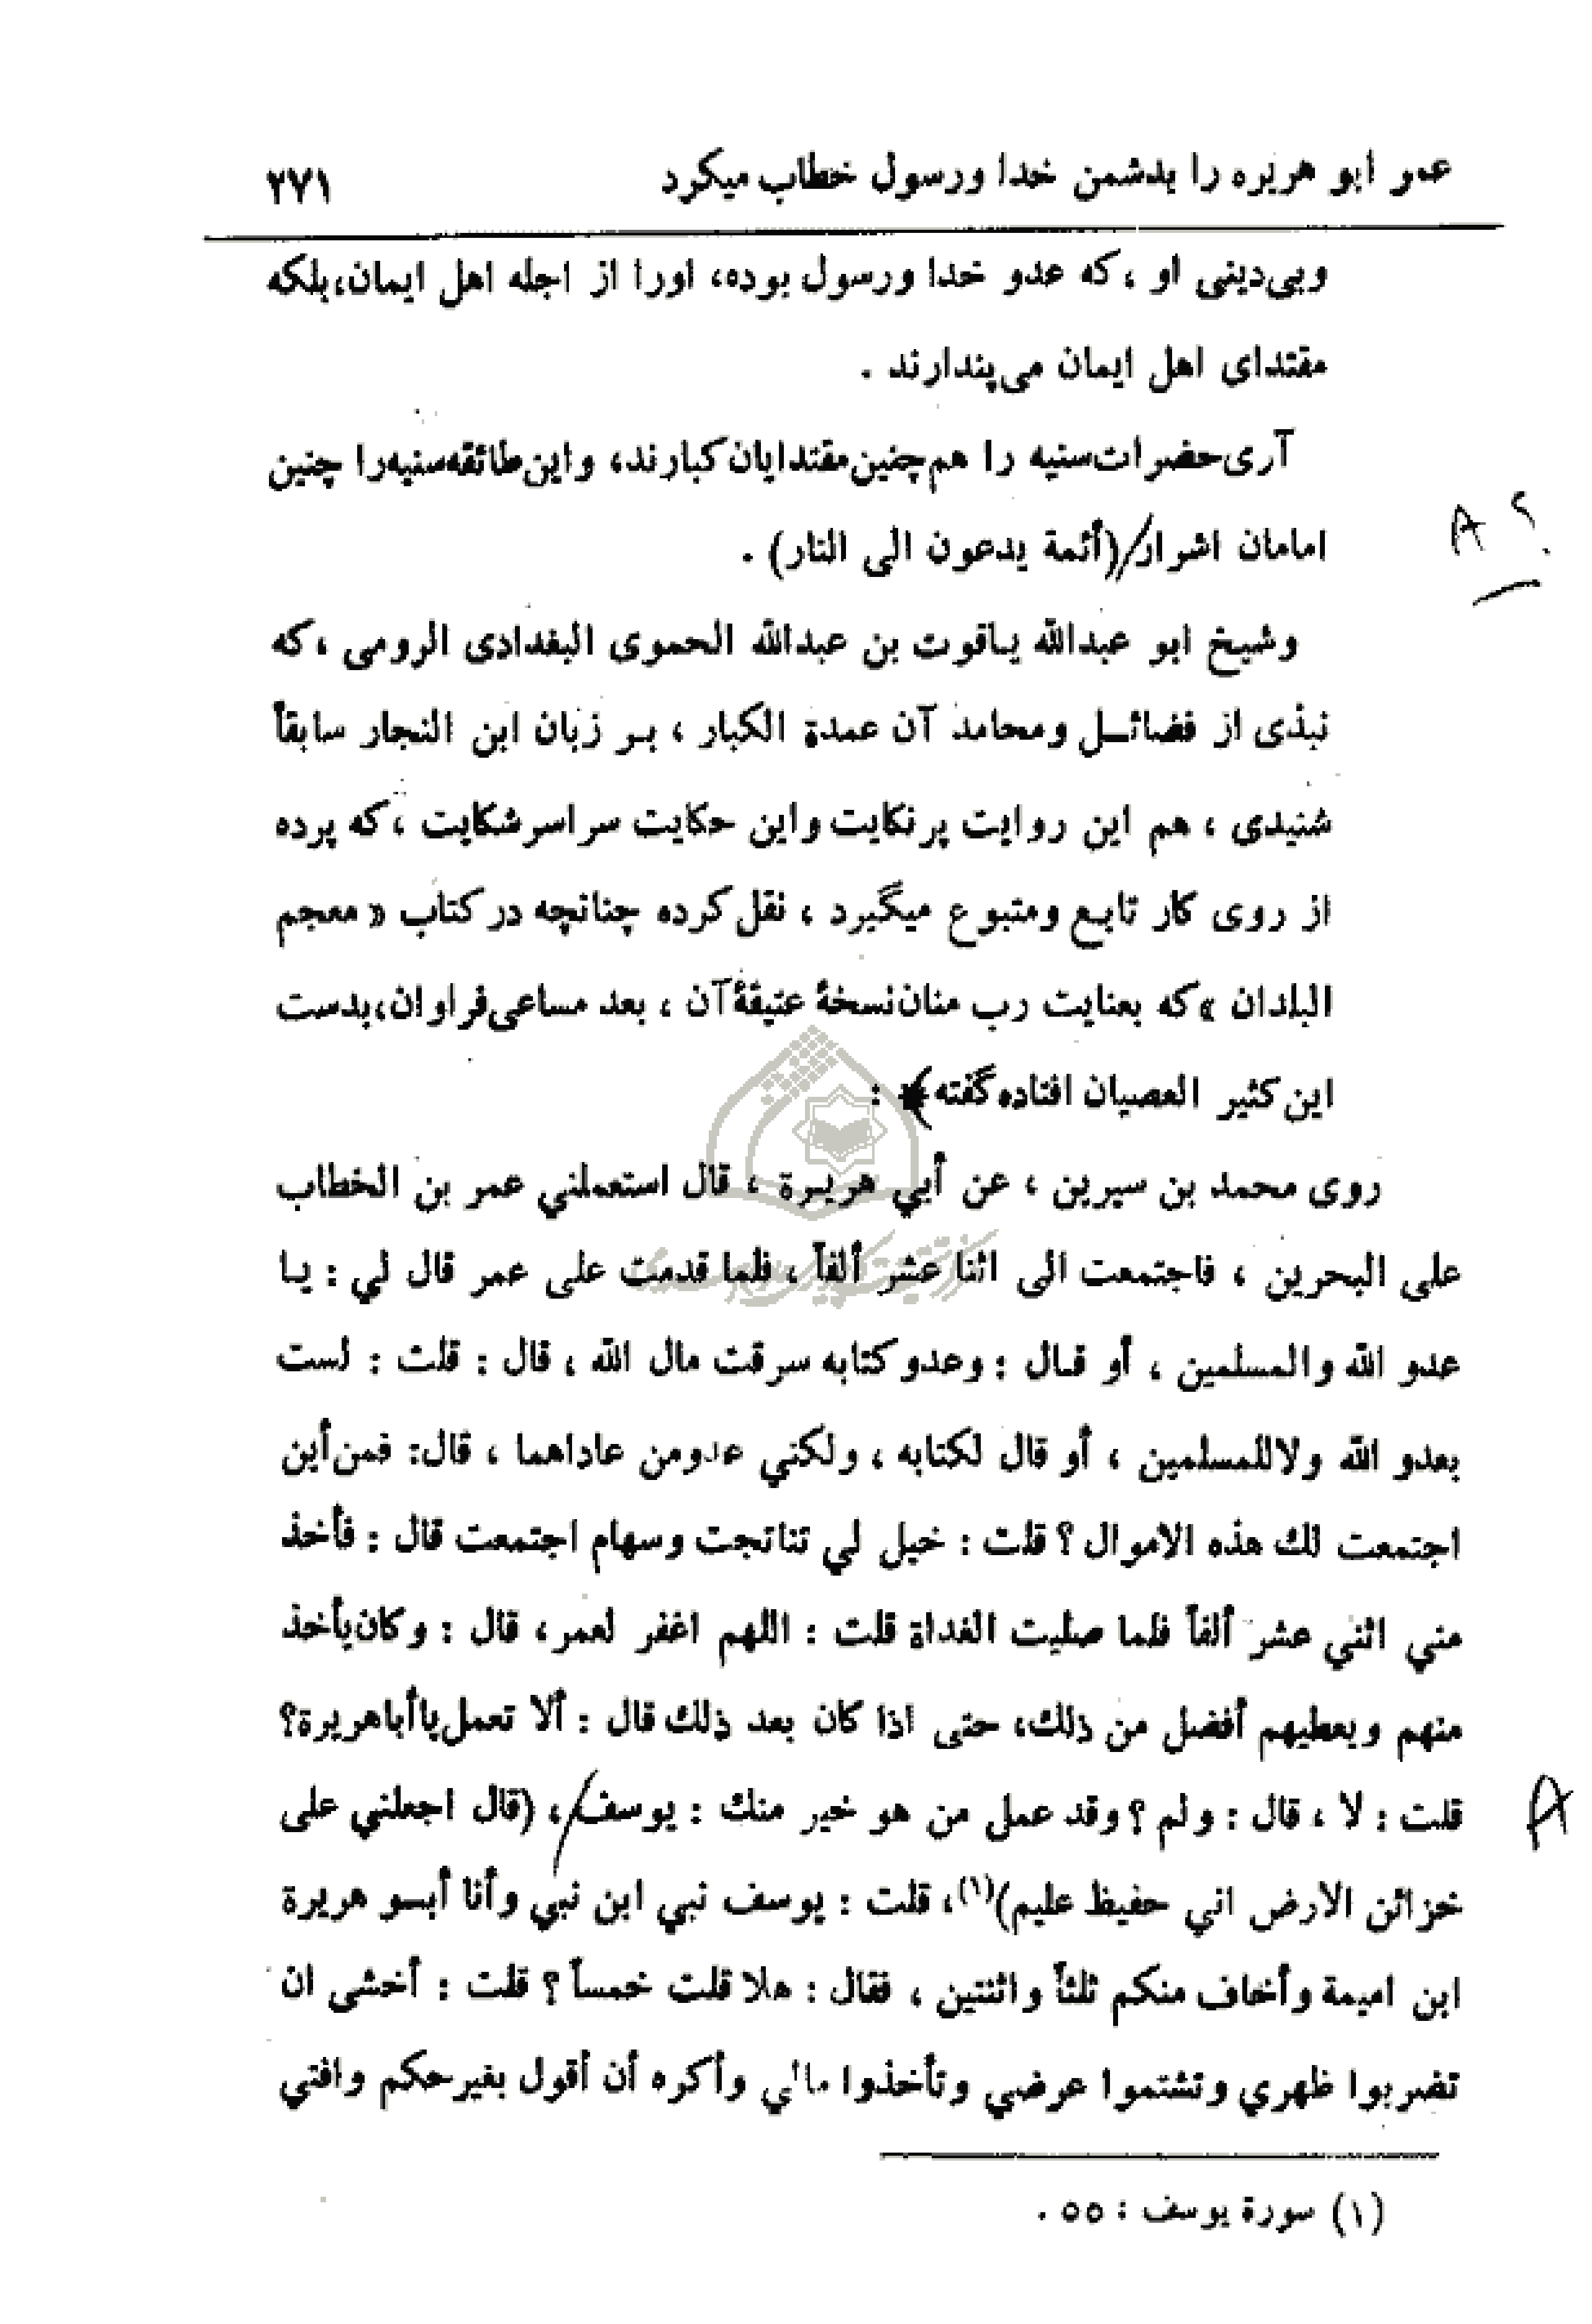 عمر ابو هریره را بدشمن خدا ورسول خطاب میکرد ۲۷۱
وبی‌دینی او ، که عدو خدا ورسول بوده، اورا از اجله اهل ایمان، بلکه
مقتدای اهل ایمان می‌پندارند .
آری حضرات سنیه را هم چنین مقتدایان کبارند، واین طائفه سنیه را چنین
امامان اشرار (أئمة يدعون الى النار) .
A ؟
وشیخ ابو عبدالله یاقوت بن عبدالله الحموی البغدادی الرومی ، که
نبذی از فضائل ومحامد آن عمدة الکبار ، بر زبان ابن النجار سابقاً
شنیدی ، هم این روایت پر نکایت واین حکایت سراسر شکایت ، که پرده
از روی کار تابع ومتبوع میگیرد ، نقل کرده چنانچه در کتاب « معجم
البلدان » که بعنایت رب منان نسخهٔ عتیقهٔ آن ، بعد مساعی فراوان، بدست
این کثیر العصیان افتاده گفته﴾ :
روى محمد بن سيرين ، عن أبي هريرة ، قال استعملني عمر بن الخطاب
على البحرين ، فاجتمعت الى اثنا عشر ألفاً ، فلما قدمت على عمر قال لي : يا
عدو الله والمسلمين ، أو قال : وعدو كتابه سرقت مال الله ، قال : قلت : لست
بعدو الله ولا للمسلمين ، أو قال لكتابه ، ولكني عدو من عاداهما ، قال: فمن أين
اجتمعت لك هذه الاموال ؟ قلت : خيل لي تناتجت وسهام اجتمعت قال : فأخذ
مني اثني عشر ألفاً فلما صليت الغداة قلت : اللهم اغفر لعمر، قال : وكان يأخذ
منهم ويعطيهم أفضل من ذلك، حتى اذا كان بعد ذلك قال : ألا تعمل يا أبا هريرة؟
قلت : لا ، قال : ولم ؟ وقد عمل من هو خير منك : يوسف ، (قال اجعلني على
A
خزائن الارض اني حفيظ عليم)(١)، قلت : يوسف نبي ابن نبي وأنا أبو هريرة
ابن اميمة وأخاف منكم ثلثاً واثنتين ، فقال : هلا قلت خمساً ؟ قلت : أخشى ان
تضربوا ظهري وتشتموا عرضي وتأخذوا مالي وأكره أن أقول بغير حكم وافتي
(١) سورة يوسف : ٥٥ .